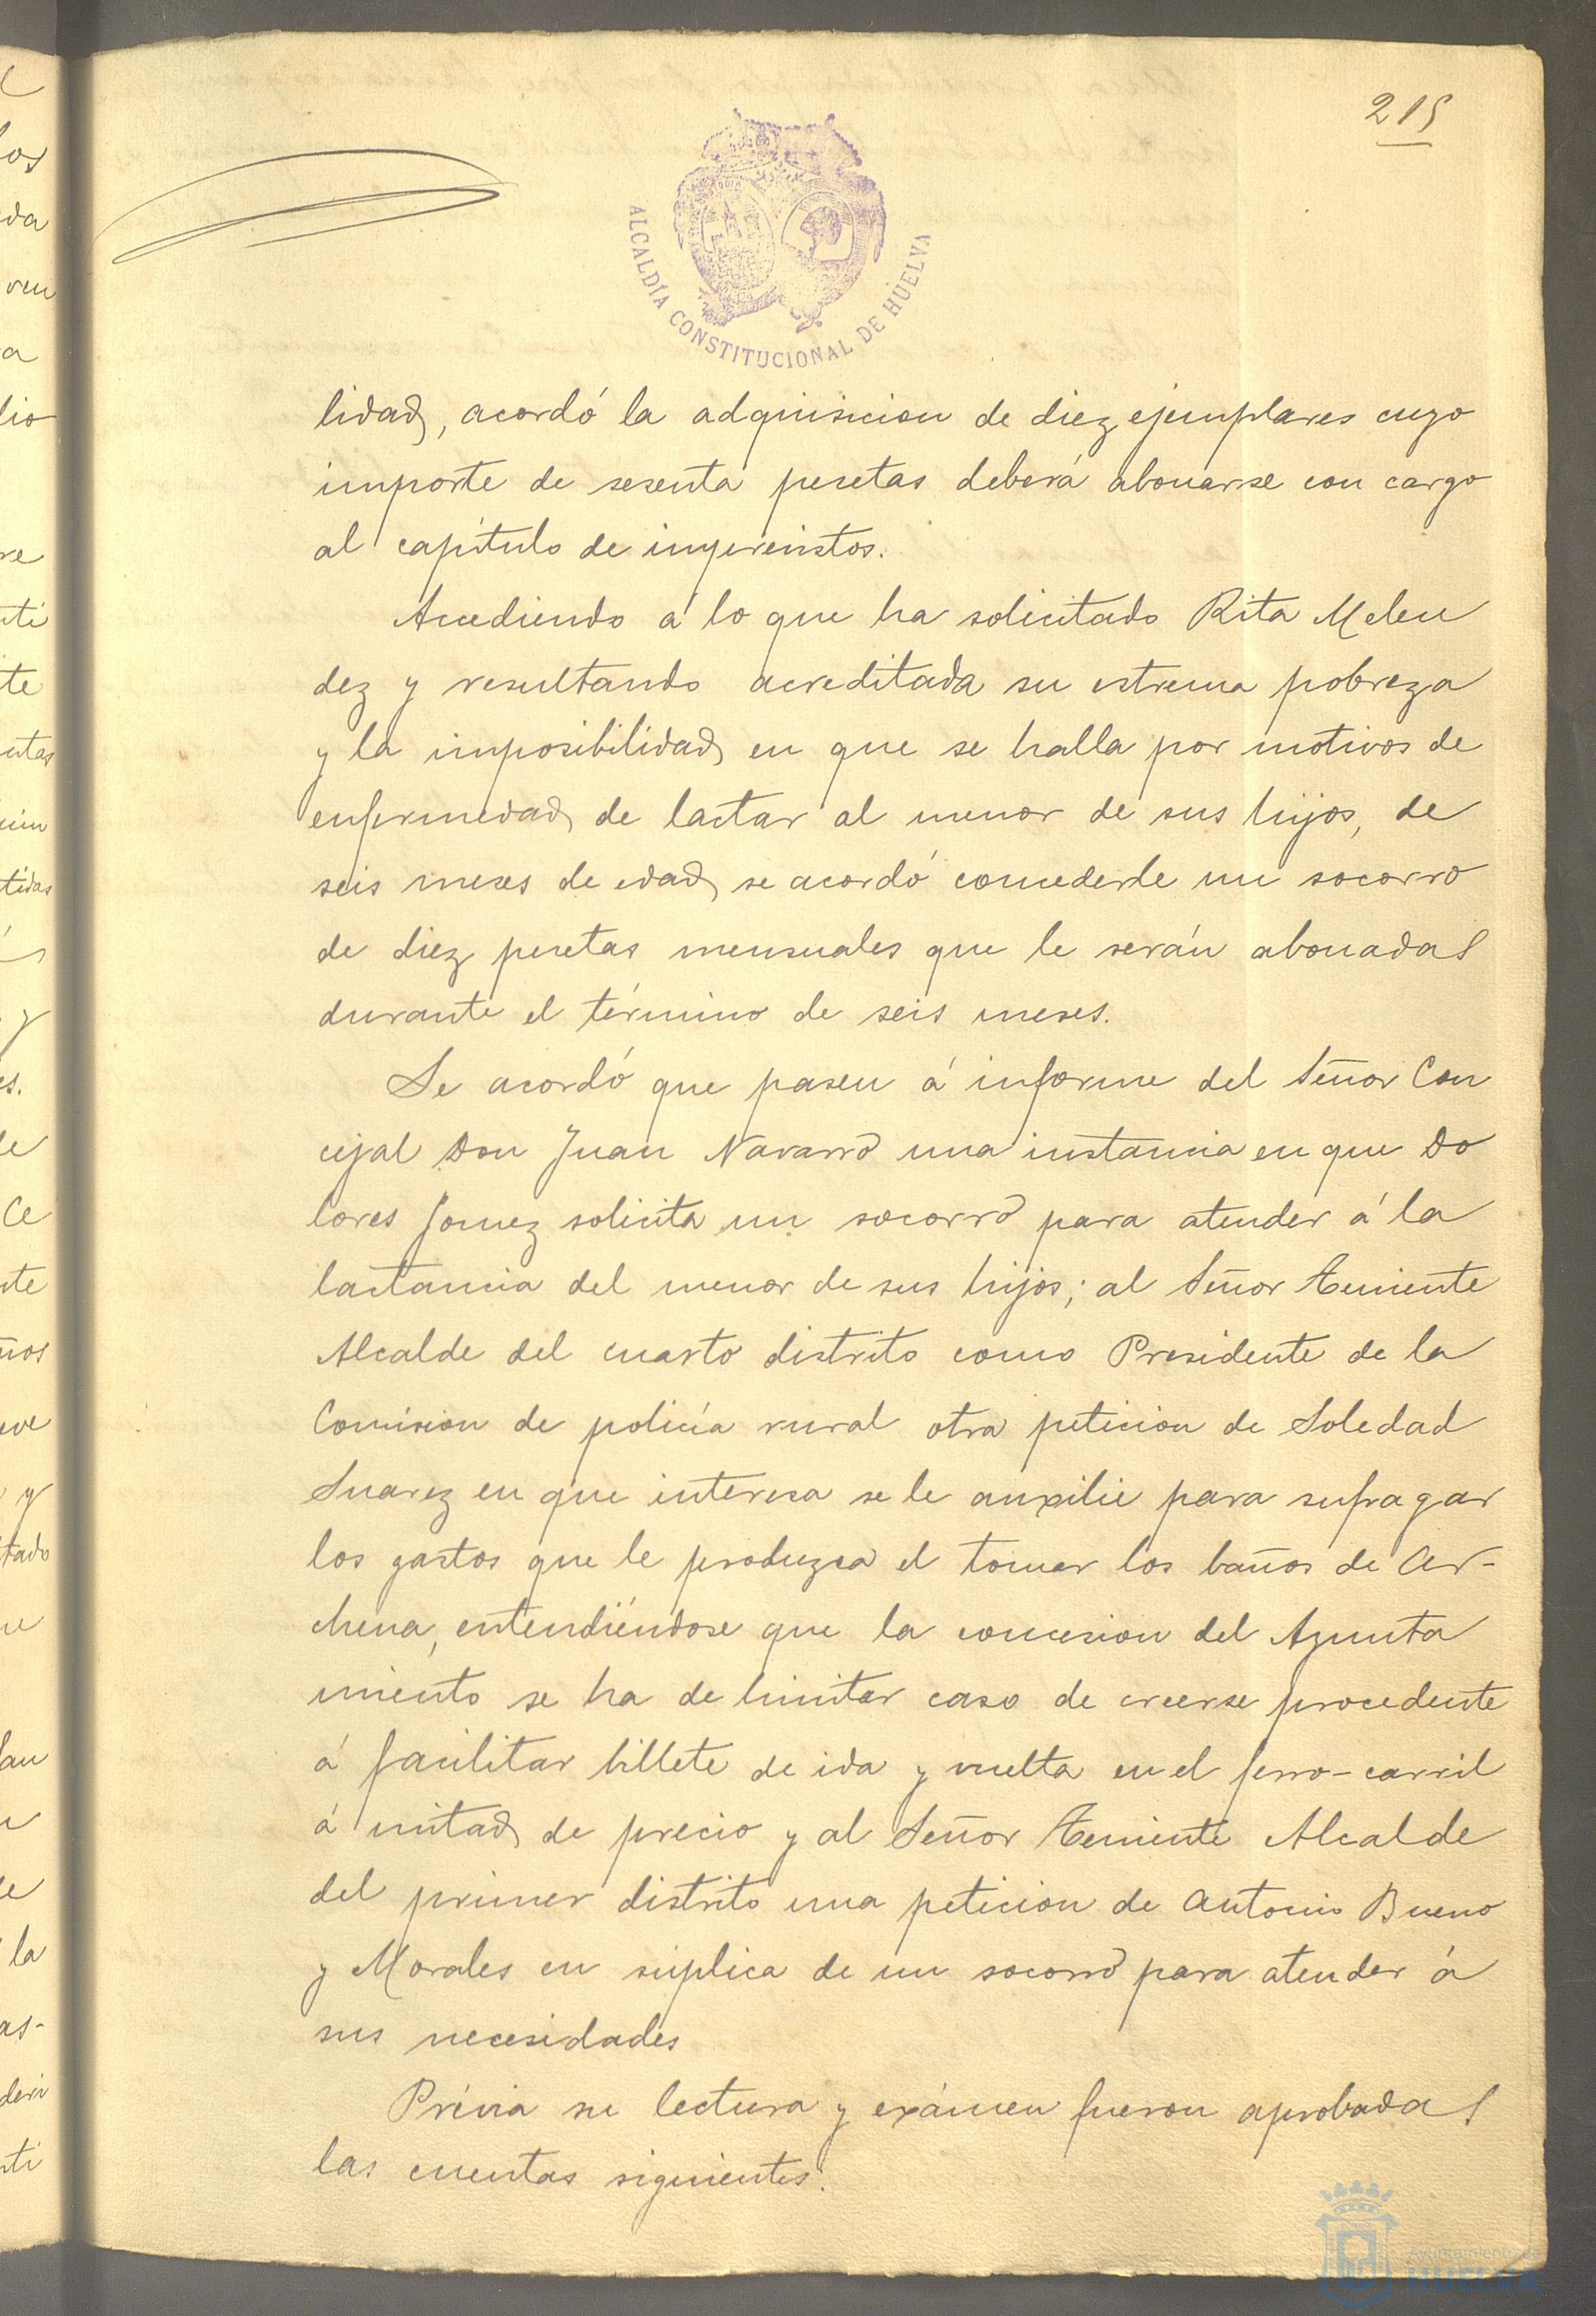 215
ALCALDÍA CONSTITUCIONAL DE HUELVA
lidad, acordó la adquisicion de diez ejemplares cuyo
importe de sesenta pesetas deberá abonarse con cargo
al capítulo de imprevistos.
Accediendo á lo que ha solicitado Rita Melen
dez y resultando acreditada su estrema pobreza
y la imposibilidad en que se halla por motivos de
enfermedad de lactar al menor de sus hijos, de
seis meses de edad se acordó concederle un socorro
de diez pesetas mensuales que le serán abonadas
durante el término de seis meses.
Se acordó que pasen á informe del Señor Con
cejal Don Juan Navarro una instancia en que Do
lores Gomez solicita un socorro para atender á la
lactancia del menor de sus hijos; al Señor Teniente
Alcalde del cuarto distrito como Presidente de la
Comision de policía rural otra peticion de Soledad
Suarez en que interesa se le auxilie para sufragar
los gastos que le produzca el tomar los baños de Ar-
chena, entendiéndose que la concesion del Ayunta
miento se ha de limitar caso de creerse procedente
á facilitar billete de ida y vuelta en el ferro-carril
á mitad de precio y al Señor Teniente Alcalde
del primer distrito una peticion de Antonio Bueno
y Morales en súplica de un socorro para atender á
sus necesidades
Prévia su lectura y exámen fueron aprobadas
las cuentas siguientes.
Ayuntamiento de
HUELVA